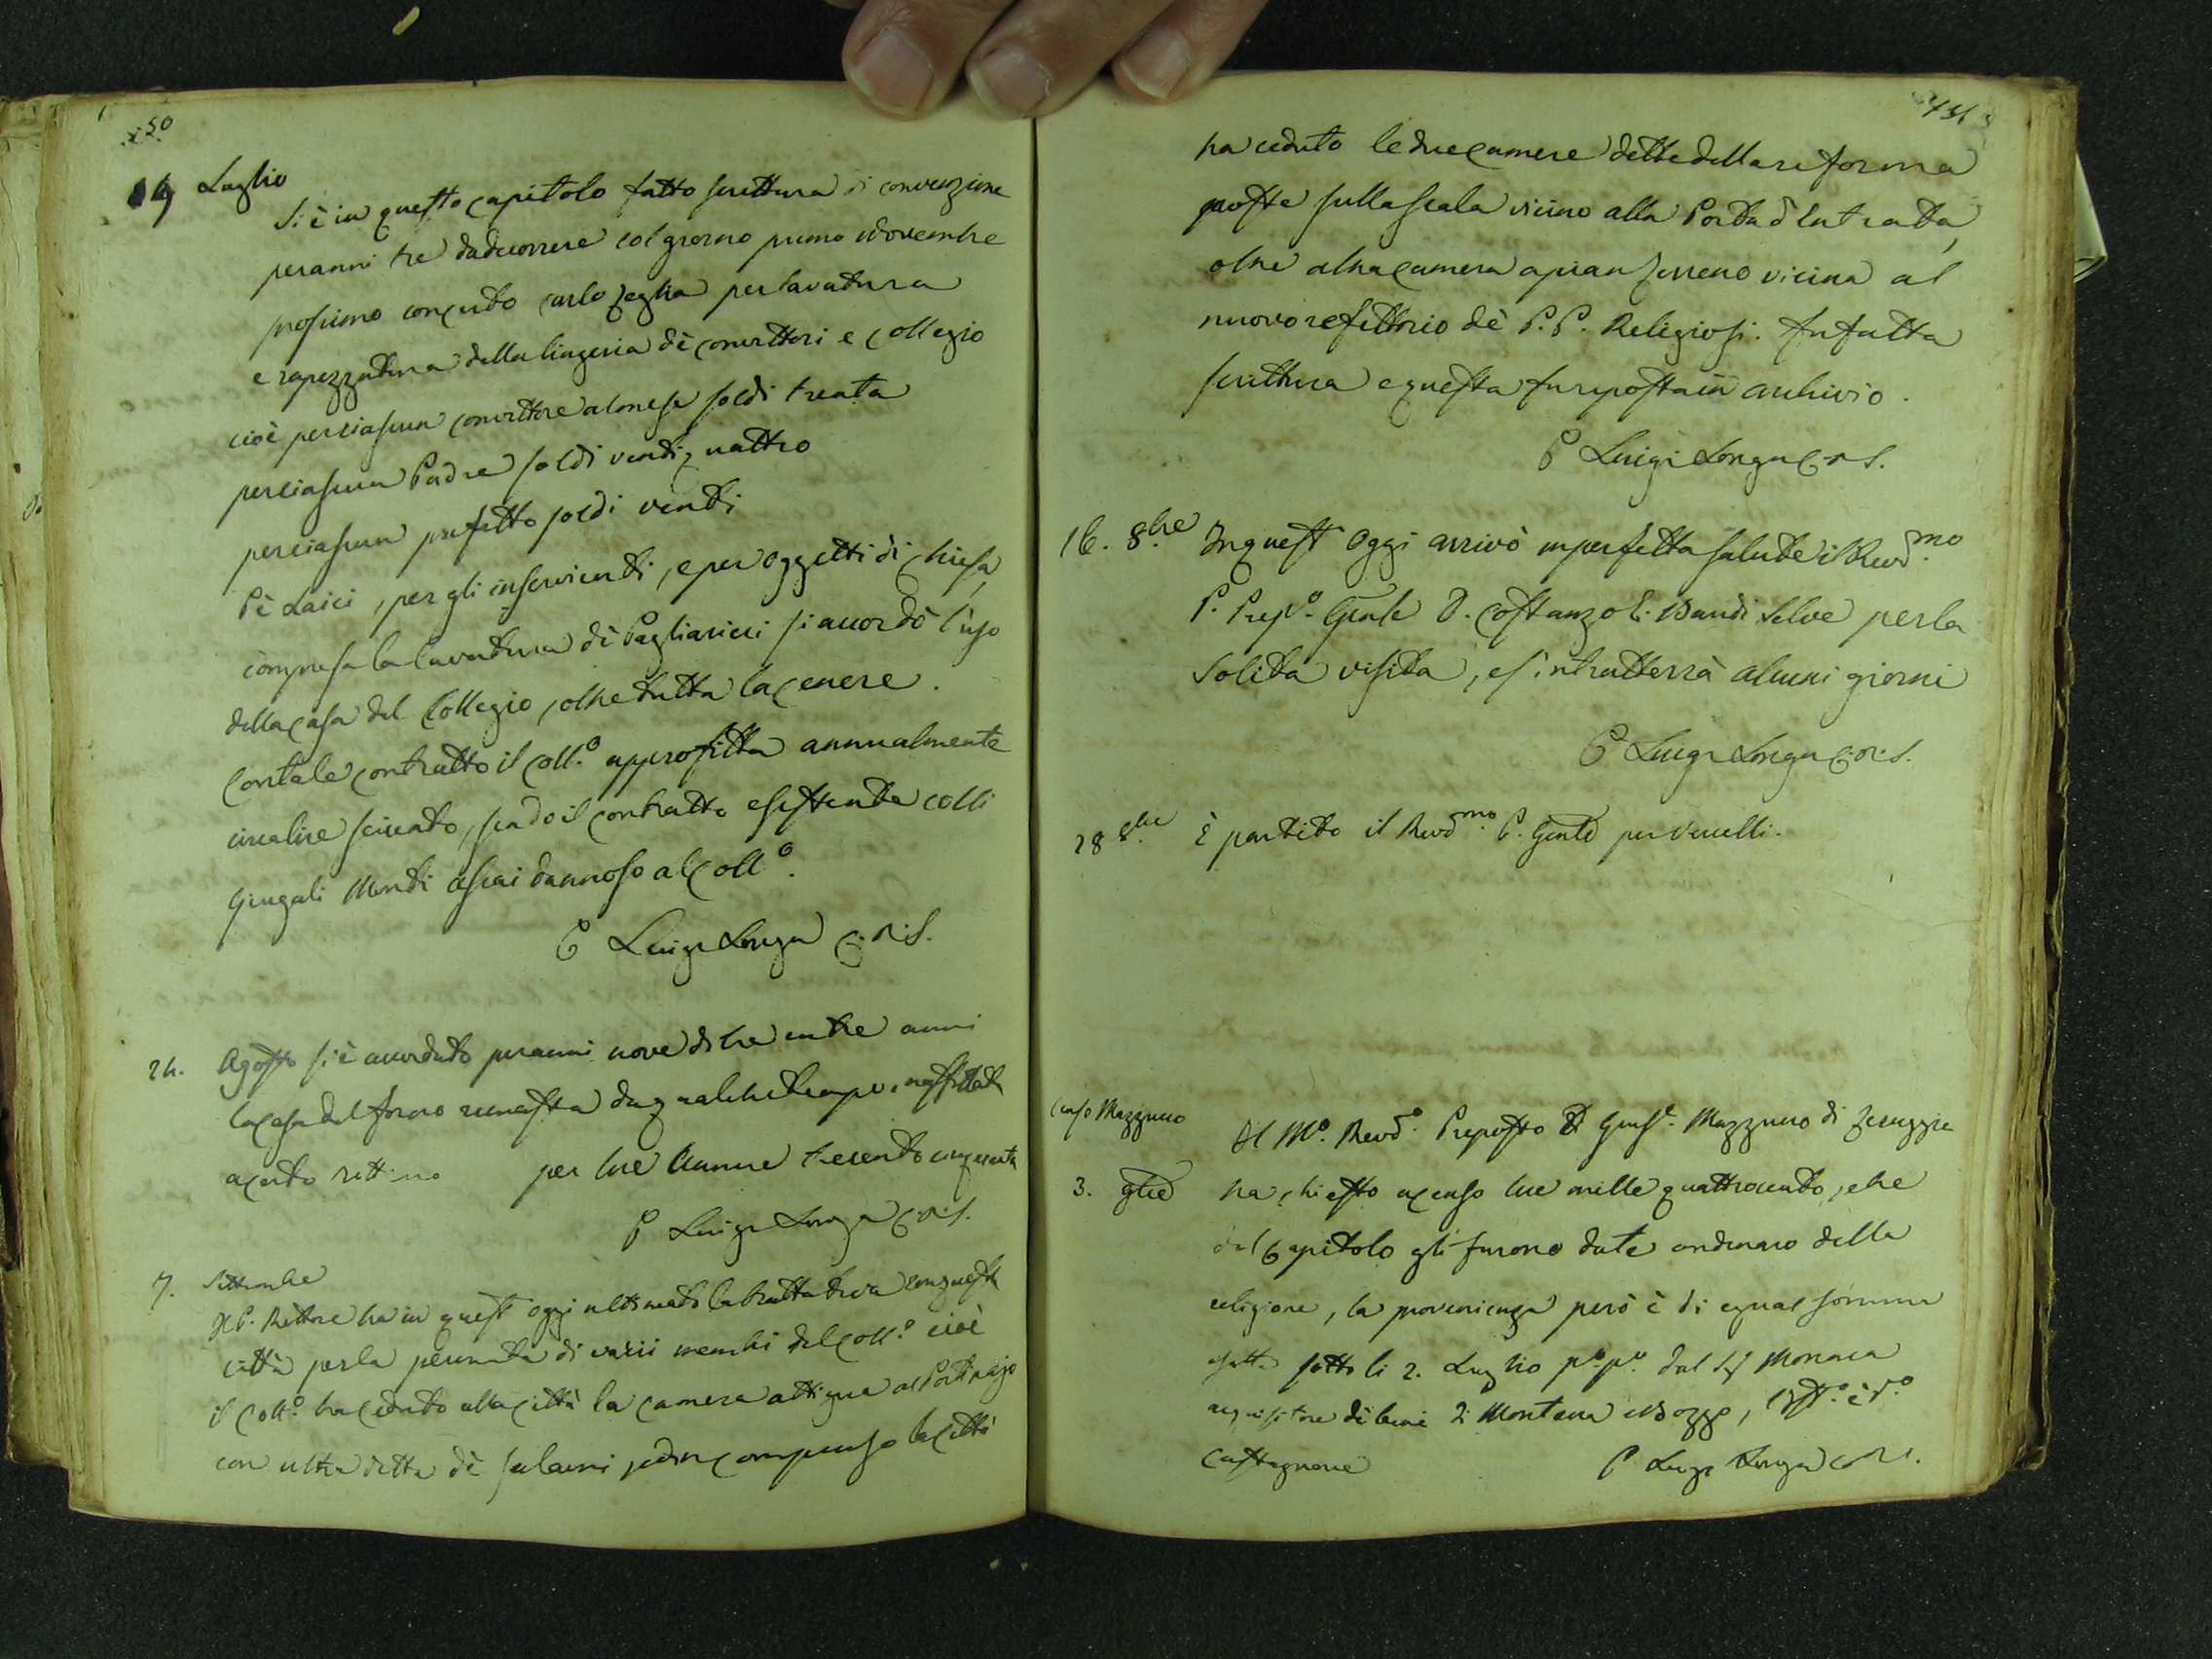 150
14 Luglio
Si è in questo capitolo fatto scrittura di convenzione
per anni tre da decorrere col giorno primo Novembre
prossimo con certo Carlo Zeglia per lavatura
e rapezzatura della lingeria dè convittori e Collegio
cioè per ciascun convittore al mese soldi trenta
per ciascun Padre soldi venti quattro
per ciascun prefetto soldi venti
Pè Laici, per gli inservienti, e per oggetti di Chiesa,
compresa la lavatura dè Pagliaricci si accordò l'uso
della casa del Collegio, oltre tutta la cenere.
Con tale contratto il Coll.o approfitta annualmente
circa lire seicento, il contratto esistente colli
Giugali Monti assai dannoso al Coll.o.
P Luigi Longa C.R.S.
24. Agosto si è accordato per anni nove di tre in tre anni
la casa del forno rimasta da qualche tempo
a certo per lire annue trecento cinquanta
P Luigi Longa C.R.S.
7. Settembre
Il P. Rettore ha in quest'oggi ultimato la trattativa con questa
città per la permuta di varii membri del Coll.o cioè
il Coll.o ha ceduto alla città la camera attigua al Portinajo
con altra detta dè salami ed in compenso la città
151
ha ceduto le due camere dette della riforma
poste sulla scala vicino alla Porta d'Entrata,
oltre altra camera a pian terreno vicina al
nuovo refettorio dè P.P. Religiosi. Fu fatta
scrittura e questa fu riposta in archivio.
P Luigi Longa C.R.S.
16. 8.bre In quest'oggi arrivò in perfetta salute il Revd.mo
P. Prep.o Gnle D. Costanzo Bandi Selve per la
solita visita, e s'intratterrà alcuni giorni
P Luigi Longa C.R.S.
28 8.bre È partito il Revd.mo P. Gnle per Vercelli.
Censo Mazzucco
Il M.o Revd.o Preposto D Gius.e Mazzucco di
3. 9bre ha chiesto a censo lire mille quattrocento, che
dal Capitolo gli furono date denaro della
religione, la provenienza però è di egual somma
esatta sotto li 2. Luglio p.o p.o dal Sig Monaca
acquisitore dè beni di
Castagnone P Luigi Longa C.R.S.